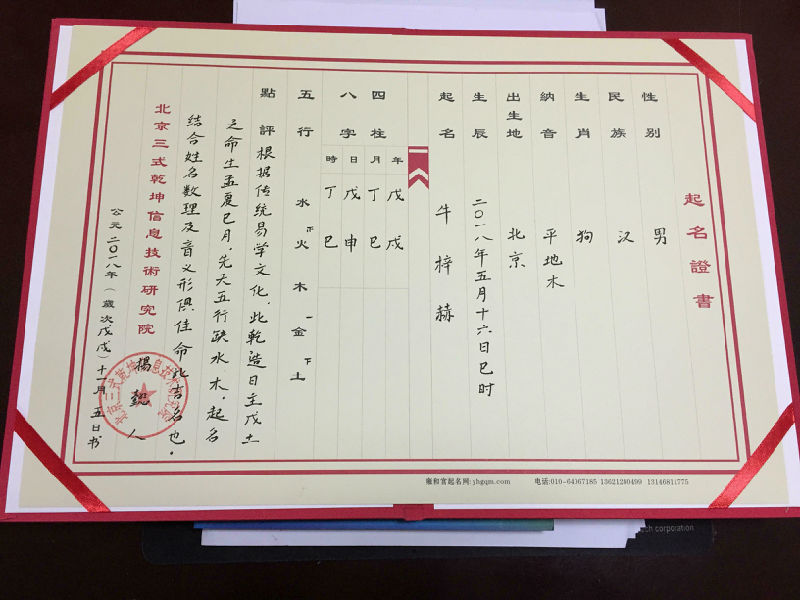 起名證書
性別 男
民族 汉
生肖 狗
納音 平地木
出生地 北京
生辰 二〇一八年五月十六日巳时
起名 牛梓赫
四柱八字
年 戊戌
月 丁巳
日 戊申
時 丁巳
五行 水下火木一金下土
點評 根据传统易学文化,此乾造日主戊土
之命生孟夏巳月,先天五行缺水木,起名
结合姓名数理及音义形俱佳命此吉名也。
北京三式乾坤信息技術研究院
楊懿人
公元二〇一八年(歲次戊戌)十一月五日书
北京三式乾坤信息技术研究院
雍和宫起名网:yhgqm.com 电话:010-64067185 13621240499
ch corporation